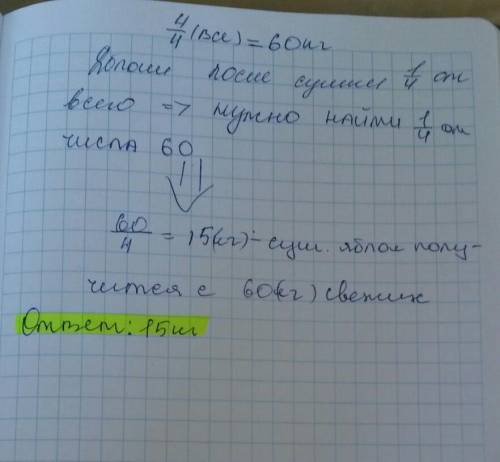 4/4 (все) = 60кг
Яблоки после сушки 1/4 от
всего => нужно найти 1/4 от
числа 60
60/4 = 15(кг) - суш. яблок полу-
чится с 60(кг) свежих
Ответ: 15кг